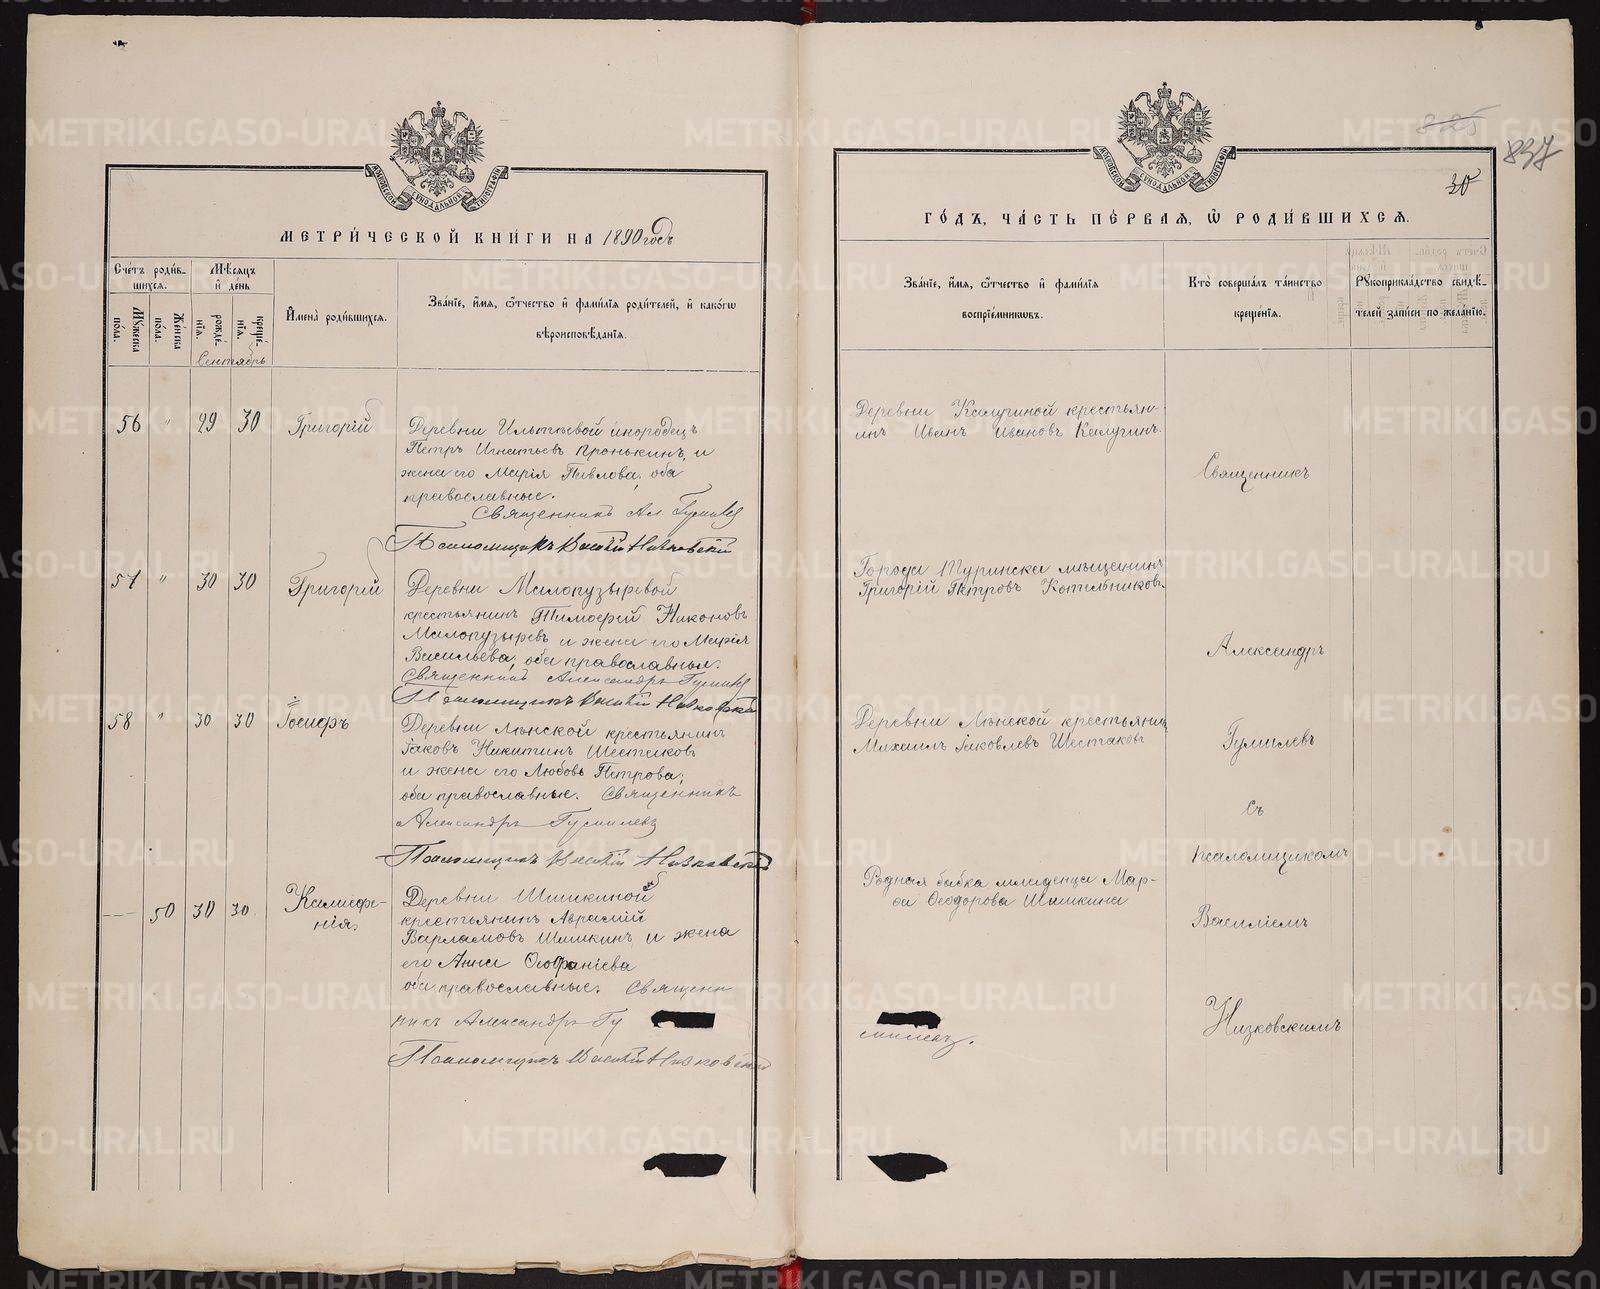 МЕТРИ́ЧЕСКОЙ КНИ́ГИ НА 1890 годъ
Сче́тъ роди́в-
шихся.
Мѣ́сяцъ
и҆ де́нь
Му́жеска
по́ла.
Же́нска
по́ла.
рожде́-
нїя.
креще́-
нїя.
И҆мена̀ роди́вшихся.
Зва́нїе, и҆́мя, ѻ҆́тчество и҆ фами́лїя роди́телей, и҆ како́гѡ
вѣроисповѣ́данїя.
Сентябрь
56 " 29 30 Григорій
Деревни Ильтяевой инородецъ
Петръ Игнатьевъ Пронькинъ, и
жена его Марія Павлова, оба
православные.
Священникъ Ал Гумилев
Псаломщикъ Василій Низковскій
57 " 30 30 Григорій
Деревни Малопузыревой
крестьянинъ Тимоѳей Никоновъ
Малопузыревъ и жена его Марія
Васильева, оба православные.
Священникъ Александръ Гумилев
Псаломщикъ Василій Низковскій
58 " 30 30 Іосифъ
Деревни Ленской крестьянинъ
Іаковъ Никитинъ Шестаковъ
и жена его Любовь Петрова,
оба православные. Священникъ
Александръ Гумилевъ
Псаломщикъ Василій Низковскій
50 30 30 Калисфе-
нія.
Деревни Шишкиной
крестьянинъ Аврамій
Варламовъ Шишкинъ, и жена
его Анна Ѳеофаніева
оба православные. Священ
никъ Александръ Гу
Псаломщикъ Василій Низковскій
825
837
30
ГО́ДЪ, ЧА́СТЬ ПЕ́РВАЯ, Ѡ҆ РОДИ́ВШИХСЯ.
Зва́нїе, и҆́мя, ѻ҆́тчество и҆ фами́лїя
воспрїе́мниковъ.
Кто̀ соверша́лъ та́инство
креще́нїя.
Рукоприкла́дство свидѣ́-
телей за́писи по жела́нїю.
Деревни Калугиной крестьян-
инъ Иванъ Ивановъ Калугинъ.
Города Туринска мѣщанинъ
Григорій Петровъ Котельниковъ.
Деревни Ленской крестьянинъ
Михаилъ Іаковлевъ Шестаковъ
Родная бабка младенца Мар-
ѳа Ѳеодорова Шишкина
милевъ.
Священникъ
Александръ
Гумилевъ
съ
псаломщикомъ
Василіемъ
Низковскимъ
METRIKI.GASO-URAL.RU